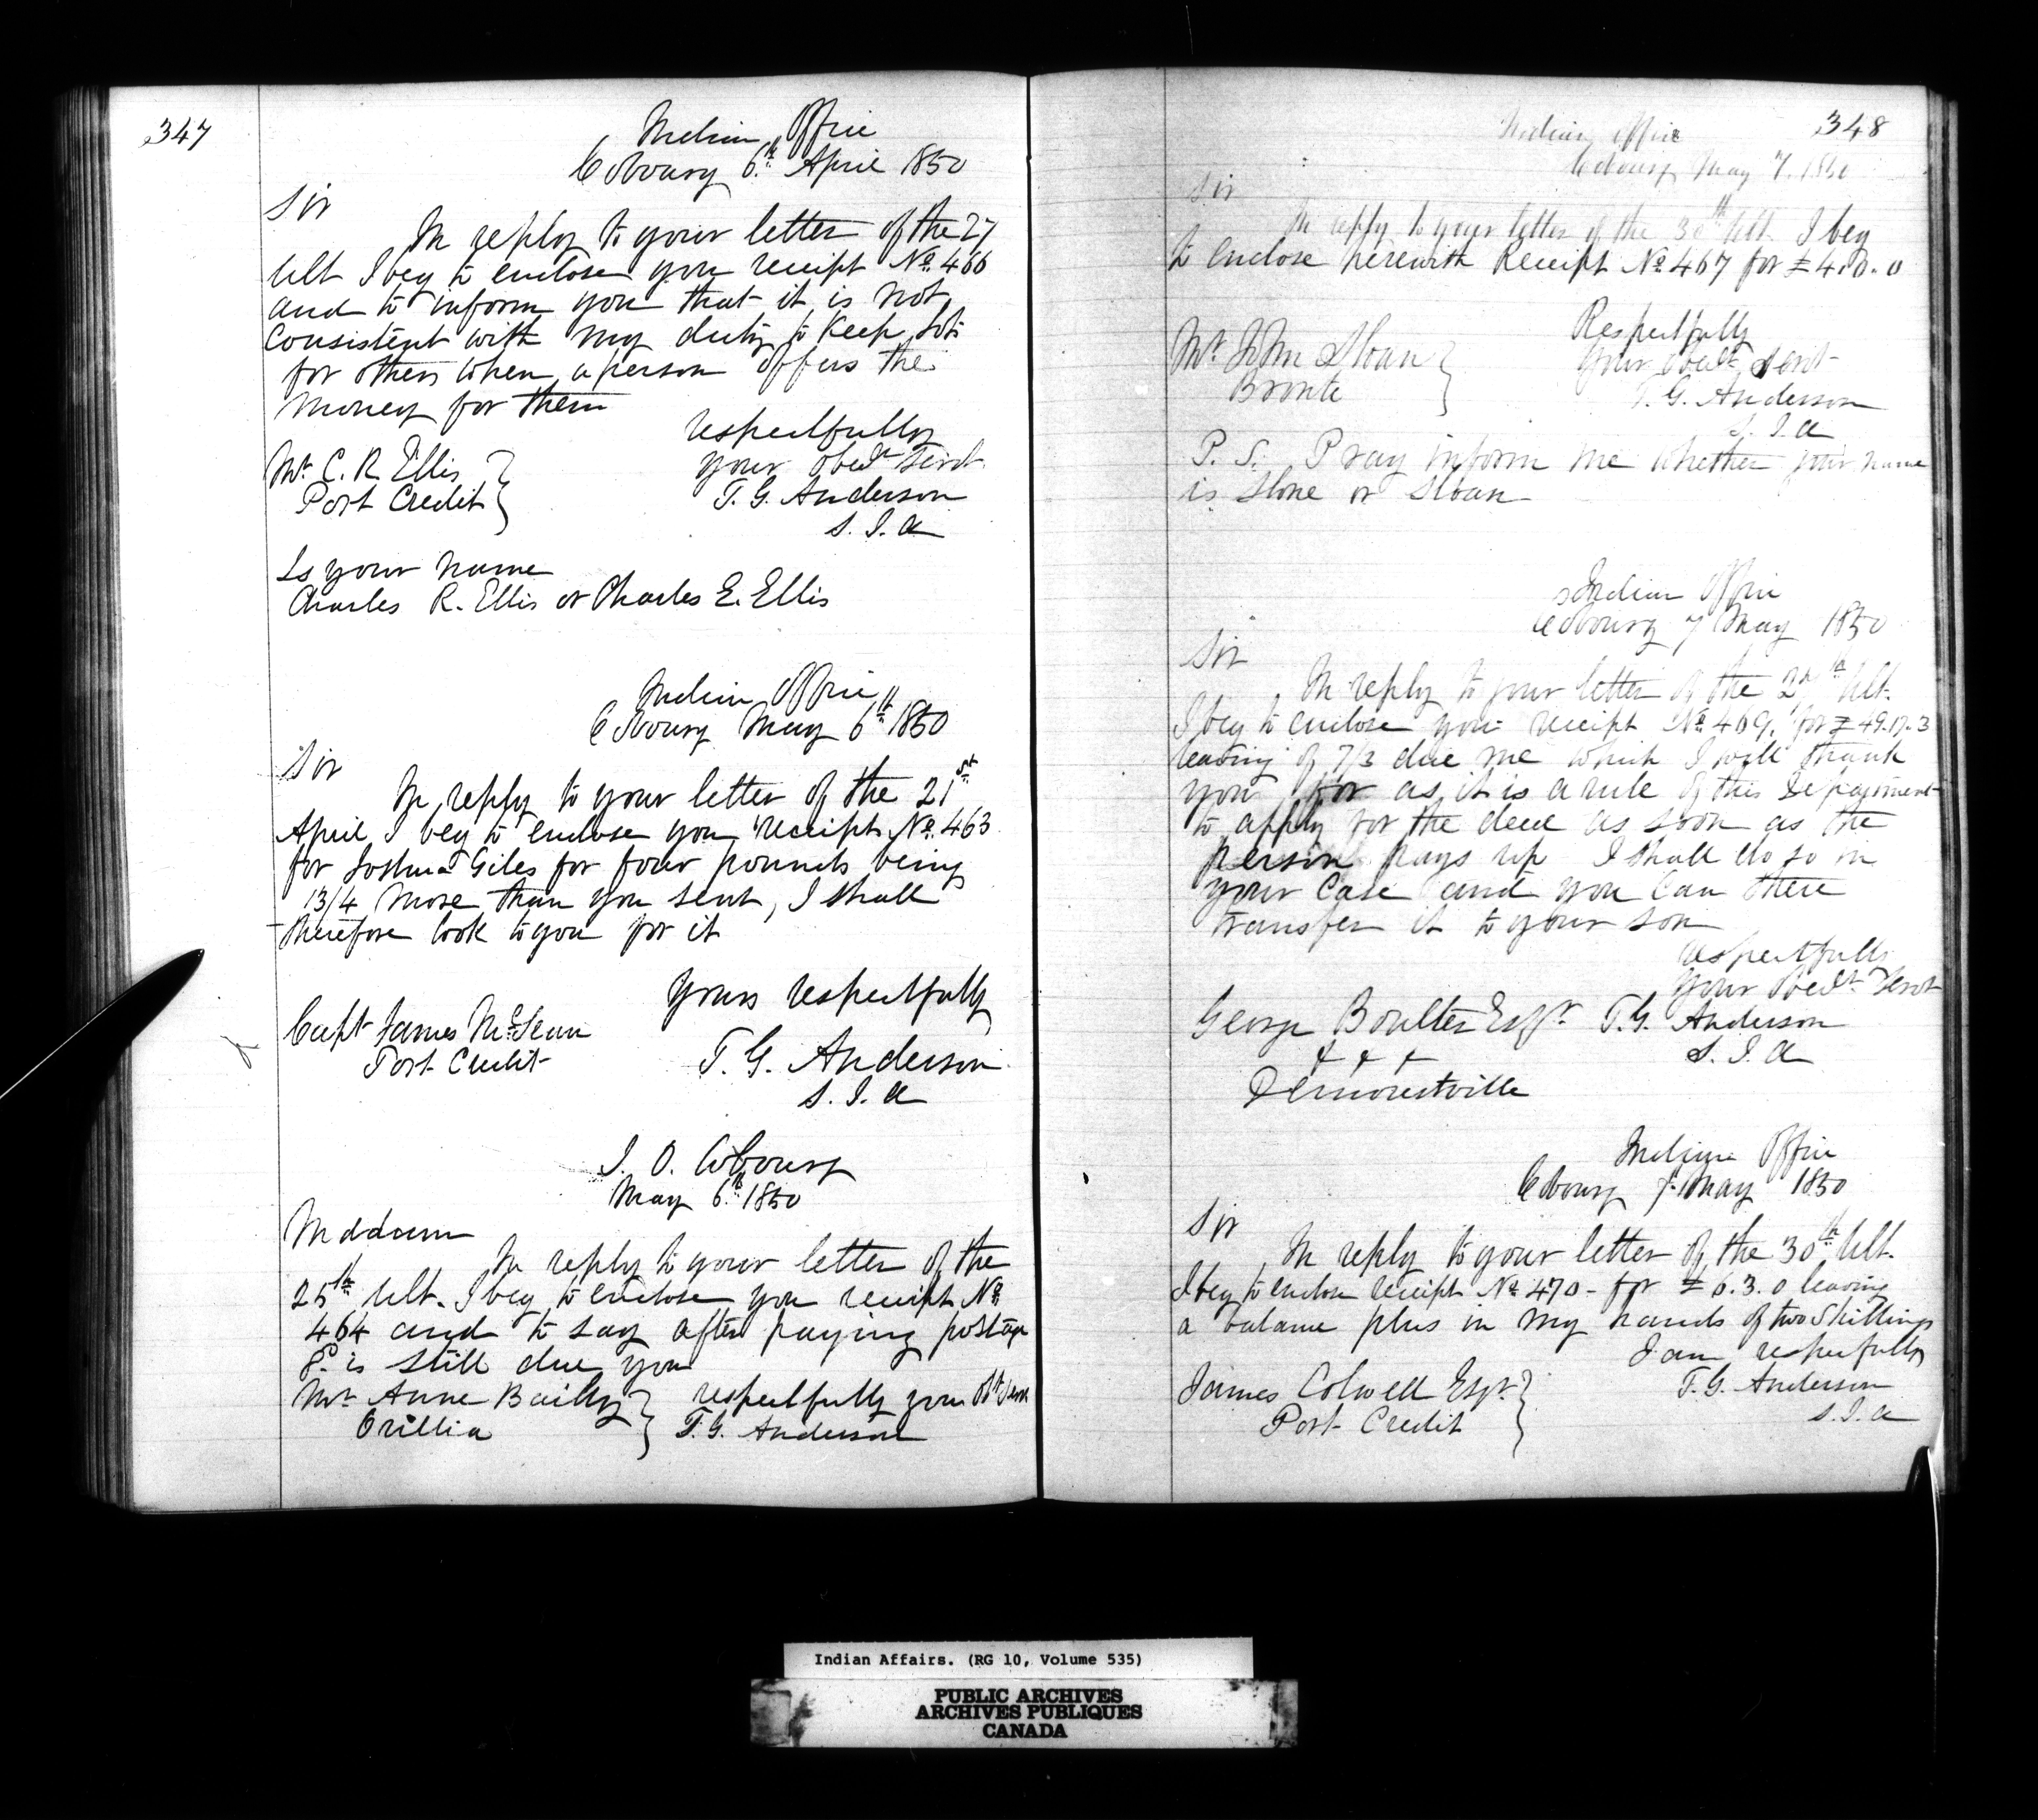 347
Indian Office
Cobourg 6th April 1850
Sir
In reply to your letter of the 27
Ult I beg to enclose you receipt No. 466
and to inform you that it is not
Consistent with my duty to Keep lots
for others when a person offers the
money for them
respectfully
your obedt Servt
T. G. Anderson
S. I. A
Mr. C. R Ellis
Port Credit
Is your name
Charles R. Ellis or Charles E. Ellis
Indian Office
Cobourg May 6th 1850
Sir
In reply to your letter of the 21st
April I beg to enclose you receipt No. 463
for Joshua Giles for four pounds being
13/4 more than you sent, I shall
therefore look to you for it
Yours respectfully
Capt James
Port Credit
T. G. Anderson
S. I. A
I. O. Cobourg
May 6th 1850
Maddam
In reply to your letter of the
25th Ult. I beg to enclose you receipt No.
464 and to say after paying postage
is still due you
Mrs Anne Bailey
Orillia
respectfully your Obt Servt
T. G. Anderson
348
Indian Office
Cobourg May 7. 1850
Sir
In reply to your letter of the 30th Ult. I beg
to enclose herewith Receipt No. 467 for £4.0.0
Respectfully
Your Obedt Servt
T. G. Anderson
S. I. A
Mr. John Sloan
Bronte
P. S. Pray inform me whether your name
is Slone or Sloan
Indian Office
Cobourg 7 May 1850
Sir
In reply to your letter of the Ult.
I beg to enclose you receipt No. 469. for £49.17.3
leaving of 7/3 due me which I will thank
you for as it is a rule of this Department
to apply for the deed as soon as the
person pays up I shall do so in
your Case and you Can there
transfer it to your son
respectfully
Your Obedt Servt
George Boulter Esqr.
T. G. Anderson
S. I. A
Demorestville
Indian Office
Cobourg 7. May 1850
Sir
In reply to your letter of the 30th Ult.
I beg to enclose receipt No. 470 - for £6.3.0 leaving
a balance plus in my hands of two Shillings
I am respectfully
James Colwell Esqr.
Port Credit
T. G. Anderson
S. I. A
Indian Affairs. (RG 10, Volume 535)
PUBLIC ARCHIVES
ARCHIVES PUBLIQUES
CANADA